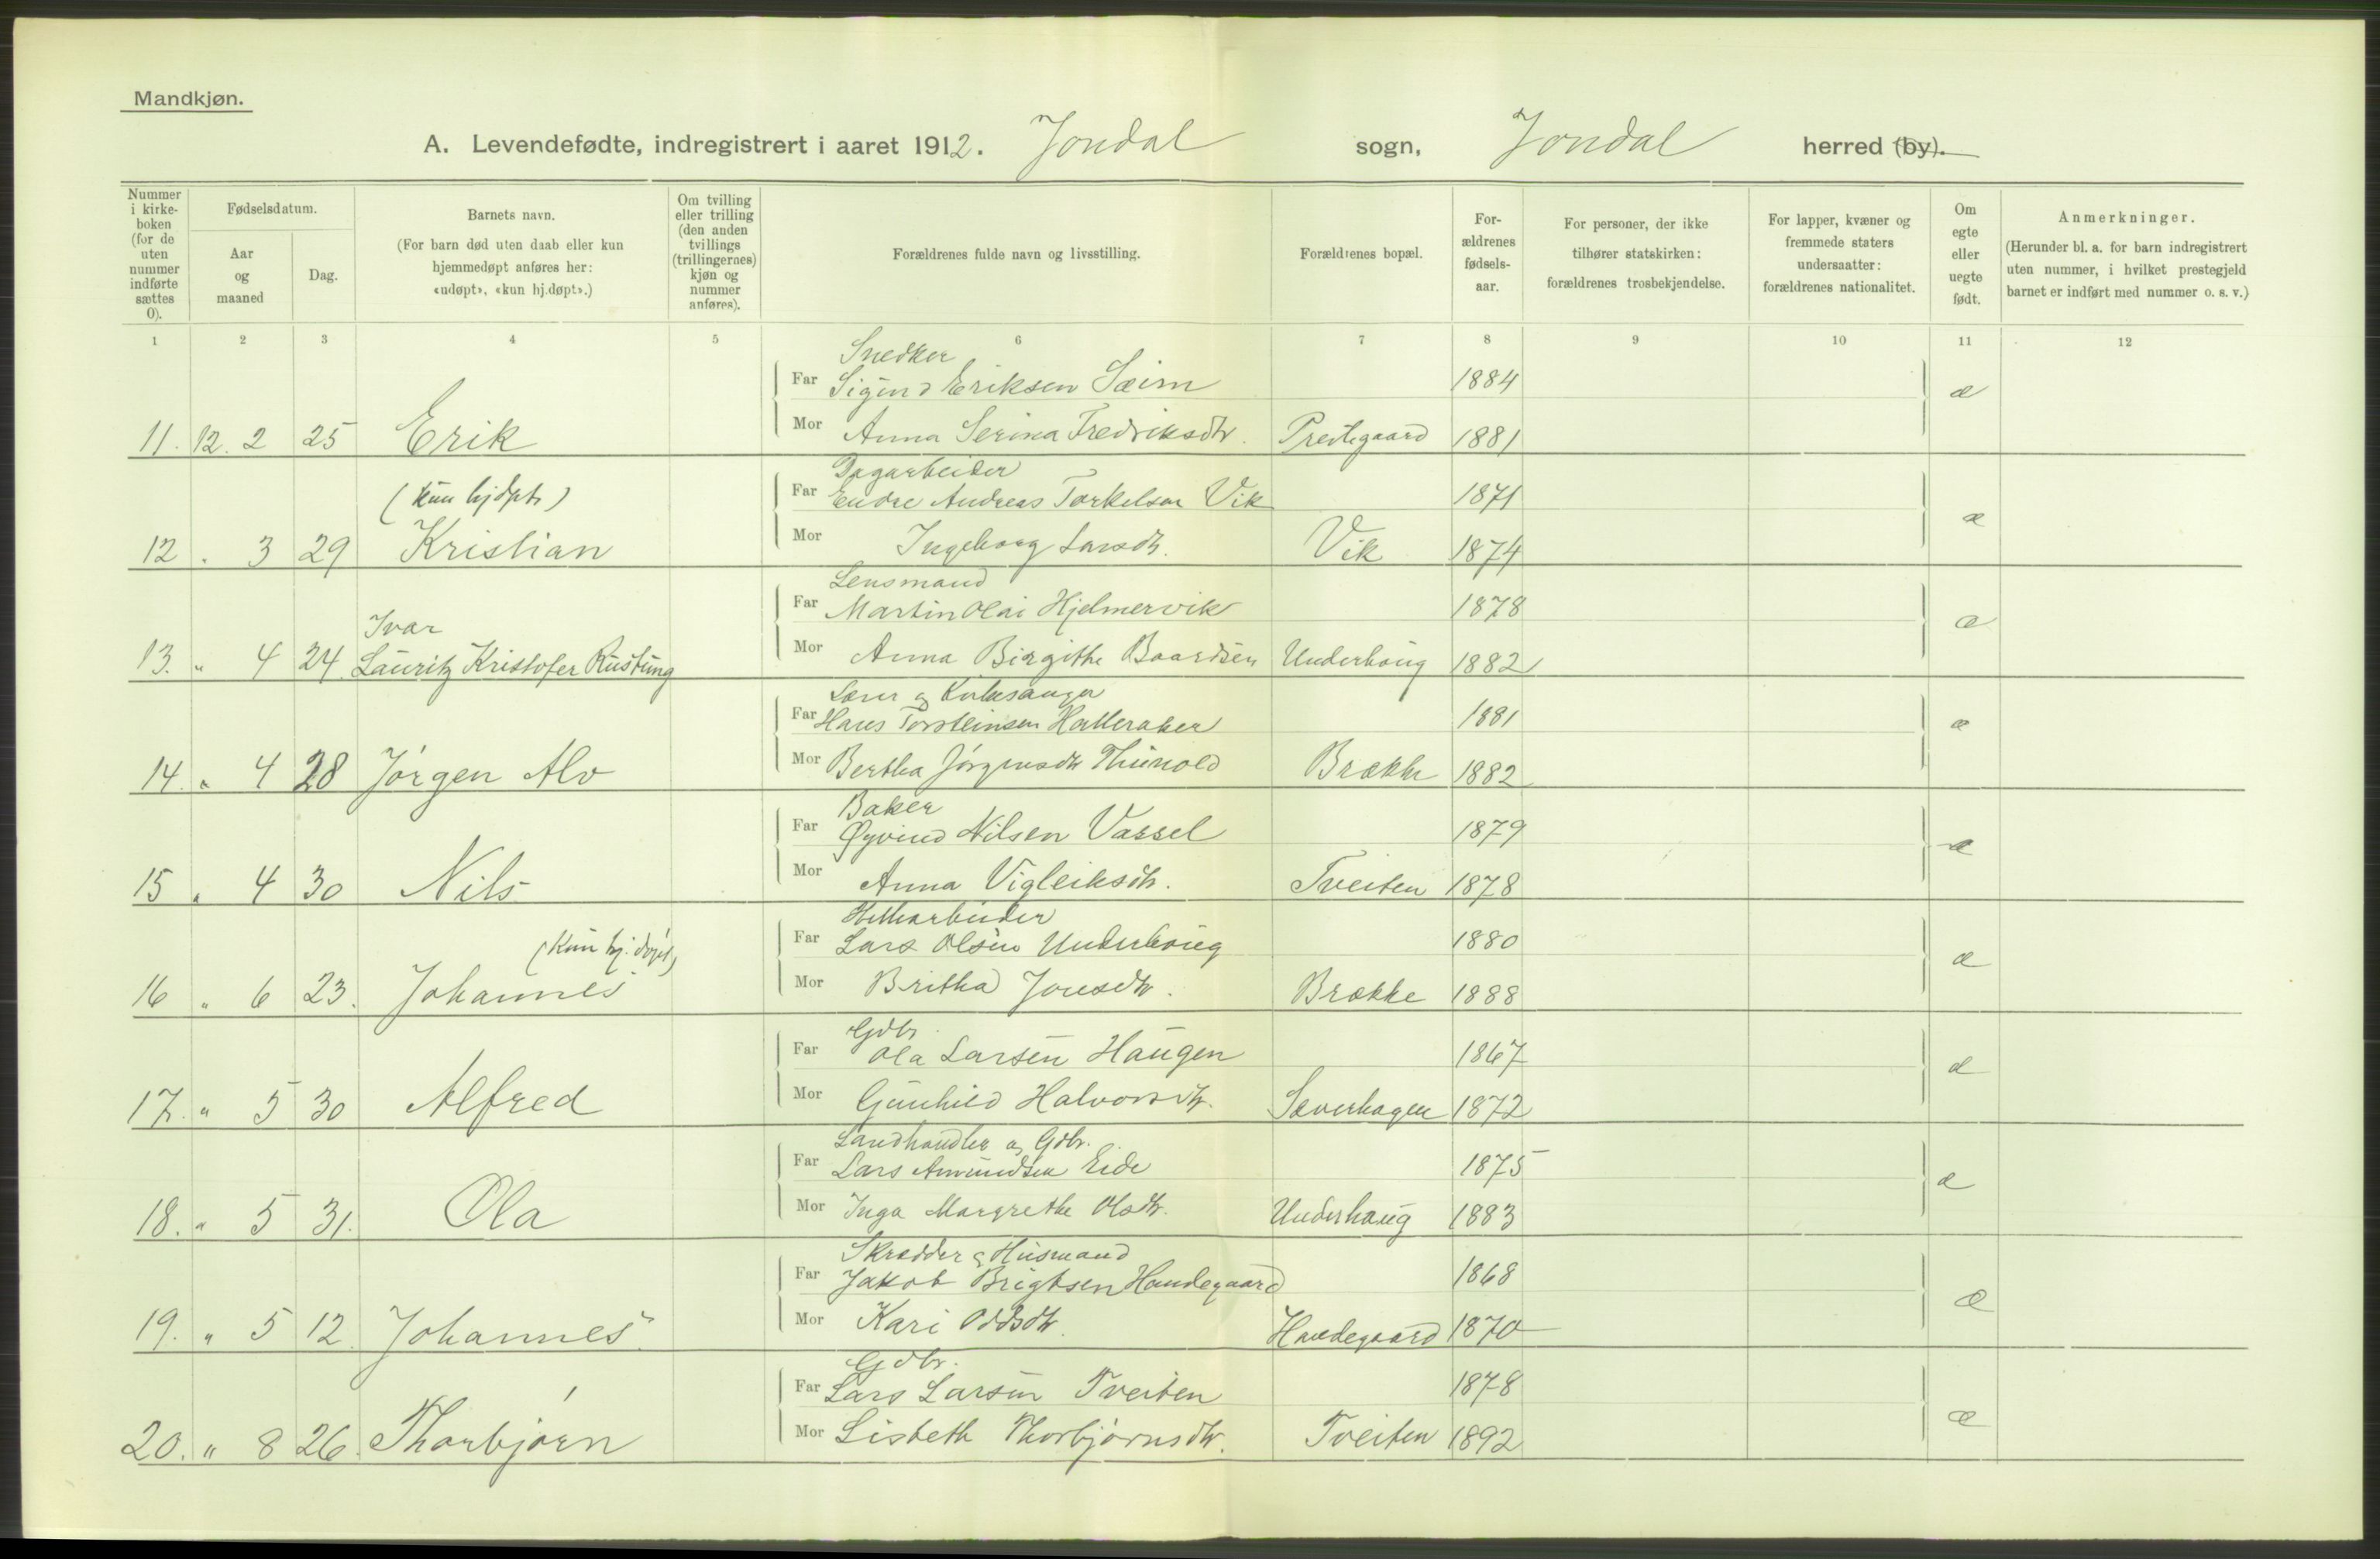 Mandkjøn.
A. Levendefødte, indregistrert i aaret 1912. Jondal sogn, Jondal herred (by).
Nummer i kirke-boken (for de uten nummer indførte sættes 0).
Fødselsdatum.
Aar og maaned
Dag.
Barnets navn.
(For barn død uten daab eller kun hjemmedøpt anføres her: «udøpt», «kun hj.døpt».)
Om tvilling eller trilling (den anden tvillings (trillingernes) kjøn og nummer anføres).
Forældrenes fulde navn og livsstilling.
Forældrenes bopæl.
For-ældrenes fødsels-aar.
For personer, der ikke tilhører statskirken: forældrenes trosbekjendelse.
For lapper, kvæner og fremmede staters undersaatter: forældrenes nationalitet.
Om egte eller uegte født.
Anmerkninger.
(Herunder bl. a. for barn indregistrert uten nummer, i hvilket prestegjeld barnet er indført med nummer o. s. v.)
1 2 3 4 5 6 7 8 9 10 11 12
Snedker
Far Sigurd Eriksen Sæim 1884 æ
11. 12. 2 25 Erik Mor Anna Serina Fredriksdtr. Prestegaard 1881
Dagarbeider
(kun hjdpt) Far Endre Andreas Torkelsen Vik 1871 æ
12 . 3 29 Kristian Mor Ingeborg Larsdtr. Vik 1874
Lensmand
Far Martin Olai Hjelmervik 1878 æ
Ivar
13. " 4 24 Lauritz Kristofer Rustung Mor Anna Birgithe Baardsen Underhoug 1882
Lærer og Kirkesanger
Far Hans Torsteinsen Hatteraker 1881 æ
14. " 4 28 Jørgen Alv Mor Bertha Jørgensdtr Thunold Brække 1882
Baker
Far Øyvind Nilsen Vassel 1879 æ
15 " 4 30 Nils Mor Anna Vigleiksdtr. Tveiten 1878
Hellearbeider
(Kun hj. døpt) Far Lars Olsen Underhoug 1880 æ
16 " 6 23. Johannes Mor Britha Jonsdtr. Brække 1888
Gdbr.
Far Ola Larsen Haugen 1867 æ
17. " 5 30 Alfred Mor Gunhild Halvorsdtr. Sæverhagen 1872
Landhandler og Gdbr.
Far Lars Amundsen Eide 1875 æ
18. " 5 31. Ola Mor Inga Margrethe Olsdtr. Underhaug 1883
Skrædder & Husmand
Far Jakob Brigtsen Handegaard 1868 æ
19. " 5 12 Johannes Mor Kari Oddsdtr. Handegaard 1870
Gdbr.
Far Lars Larsen Tveiten 1878 æ
20. " 8 26. Thorbjørn Mor Lisbeth Thorbjørnsdtr. Tveiten 1892